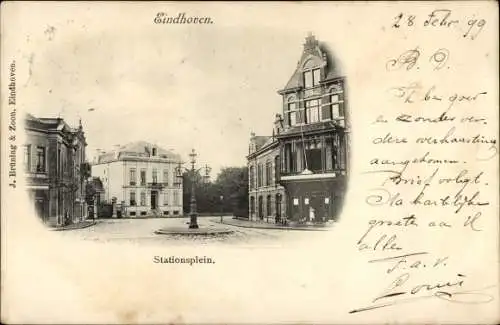 Eindhoven.
J. Brüning & Zoon, Eindhoven.
Stationsplein.
28 Febr 99
B. D.
Ik ben goed
en zonder ver
dere overhaasting
aangekomen.
Brief volgt.
Na hartelijke
groete aan U
allen
t.a.v.
Louis